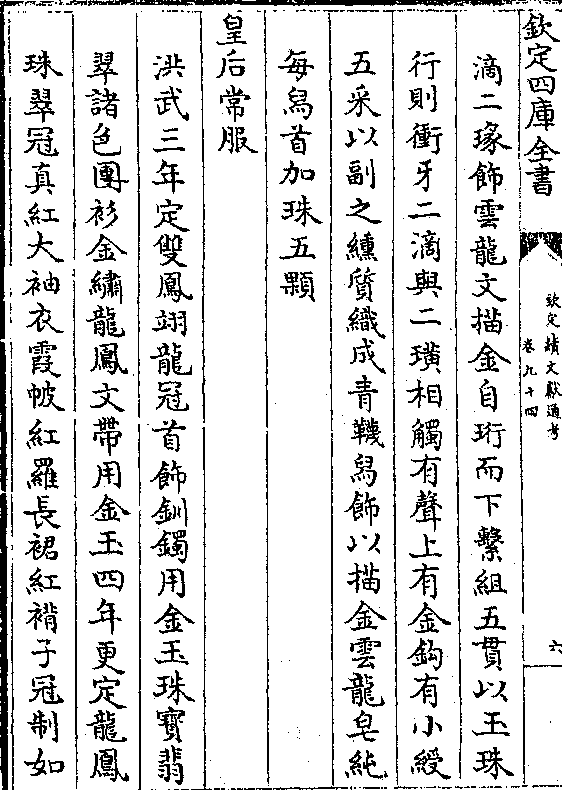 欽定四庫全書
欽定續文獻通考
卷九十四
六
滴二瑑飾雲龍文描金自珩而下繫組五貫以玉珠
行則衝牙二滴與二璜相觸有聲上有金鈎有小綬
五采以副之纁質織成青韈舄飾以描金雲龍皂純
每舄首加珠五顆
皇后常服
洪武三年定雙鳳翊龍冠首飾釧鐲用金玉珠寶翡
翠諸色團衫金繡龍鳳文帶用金玉四年更定龍鳳
珠翠冠真紅大袖衣霞帔紅羅長裙紅褙子冠制如